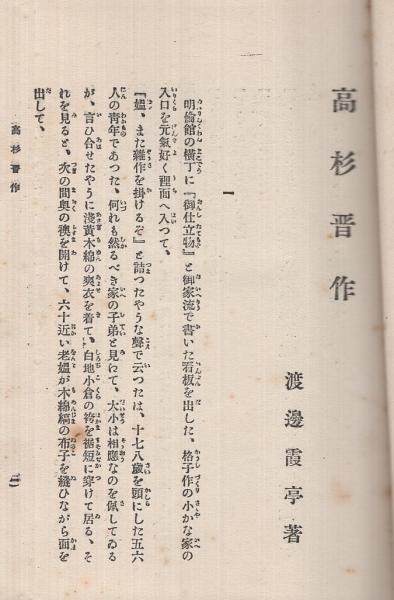 高杉晋作
渡邊霞亭著
一
明倫館の横丁に『御仕立物』と御家流で書いた看板を出した、格子作の小かな家の
入口を元氣好く裡面へ入つて、
『媼、また雜作を掛けるぞ』と詰つたやうな聲で云つたは、十七八歳を頭にした五六
人の青年であつた、何れも然るべき家の子弟と見わて、大小は相應なのを佩してゐる
が、言ひ合せたやうに淺黄木綿の爽衣を着て、白地小倉の袴を裾短に穿けて居る、そ
れを見ると、次の間奥の襖を開けて、六十近い老媼が木綿縞の布子を縫ひながら面を
出して、
高杉晋作
(一)